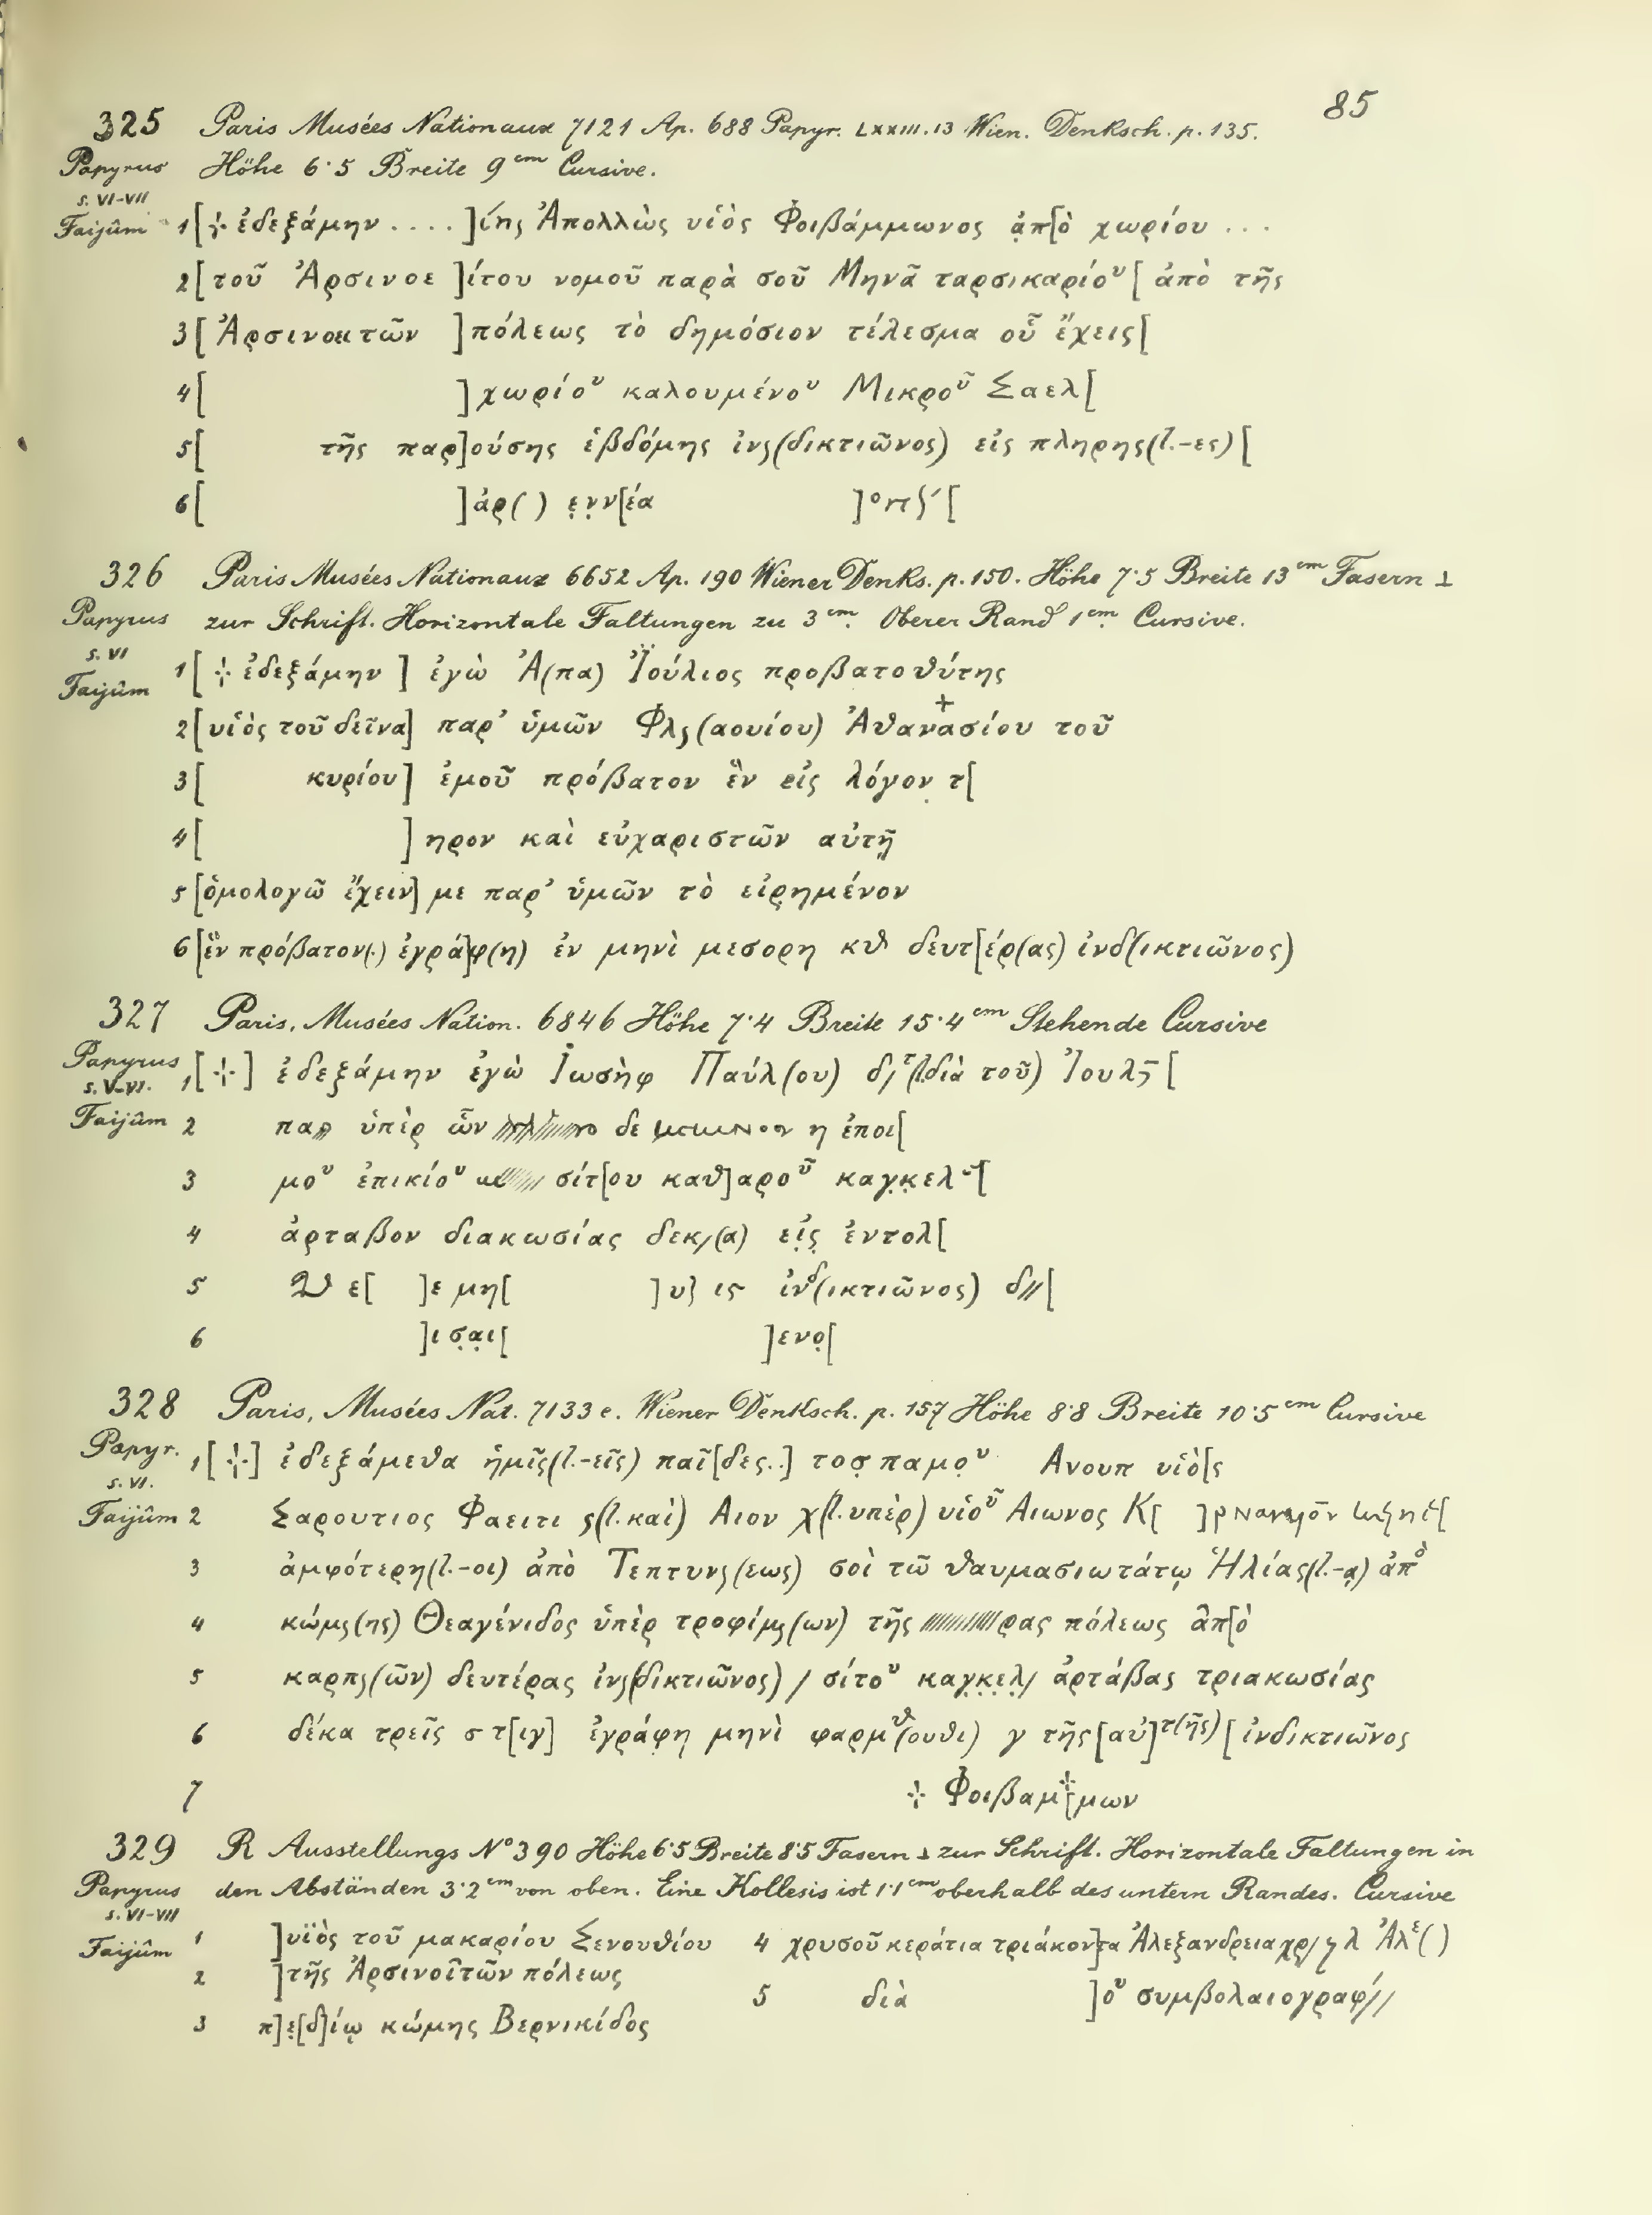 85
325 Paris Musées Nationaux 7121 Ap. 688 Papyr. LXXIII.13 Wien. Denksch. p. 135.
Papyrus Höhe 6·5 Breite 9 cm Cursive.
s. VI-VII
Faijûm 1 [⳨ ἐδεξάμην ....]ίης Ἀπολλὼς υἱὸς Φοιβάμμωνος ἀ̣π[ὸ χωρίου ...
2 [τοῦ Ἀρσινοε]ίτου νομοῦ παρὰ σοῦ Μηνᾶ ταρσικαρίου [ ἀπὸ τῆς
3 [Ἀρσινοιτῶν ]πόλεως τὸ δημόσιον τέλεσμα οὗ ἔχεις[
4 [ ]χωρίου καλουμένου Μικροῦ Σαελ[
5 [ τῆς παρ]ούσης ἑβδόμης ἰνς(δικτιῶνος) εἰς πληρης(l.-ες) [
6 [ ]ἀρ( ) ε̣ν̣ν[έα
326 Paris Musées Nationaux 6652 Ap. 190 Wiener Denks. p. 150. Höhe 7·5 Breite 13 cm Fasern ⊥
Papyrus zur Schrift. Horizontale Faltungen zu 3 cm. Oberer Rand 1 cm. Cursive.
s. VI
Faijûm 1 [⳨ ἐδεξάμην ] ἐγὼ Ἀ(πα) Ἰούλιος προβατοθύτης
2 [υἱὸς τοῦ δεῖνα] παρ' ὑμῶν Φλς(αουίου) Ἀθανασίου τοῦ
3 [ κυρίου] ἐμοῦ πρόβατον ἓν εἰς λόγον̣ τ[
4 [ ]ηρον καὶ εὐχαριστῶν αὐτῇ
5 [ὁμολογῶ ἔχειν] με παρ' ὑμῶν τὸ εἰρημένον
6 [ἓν πρόβατον(.) ἐγρά]φ(η) ἐν μηνὶ μεσορη κθ δευτ[έρ(ας) ἰνδ(ικτιῶνος)
327 Paris, Musées Nation. 6846 Höhe 7·4 Breite 15·4 cm Stehende Cursive
Papyrus
s. V-VI. 1 [⳨] ἐδεξάμην ἐγὼ Ἰωσὴφ Παύλ(ου) δ/τ(l.διὰ τοῦ) Ἰουλ[
Faijûm 2 παρ ὑπὲρ ὧν δε η ἐποι[
3 μου ἐπικίου σίτ[ου καθ]αροῦ καγ̣κ̣ελ[
4 ἀρταβον διακωσίας δεκ/(α) εἰ̣ς̣ ἐντολ[
5 ε[ ]ε μη[ ]υ} ις ἰνδ(ικτιῶνος) δ//[
6 ]ι σ̣α̣ι[ ]ενο̣[
328 Paris, Musées Nat. 7133 c. Wiener Denksch. p. 157 Höhe 8·8 Breite 10·5 cm Cursive
Papyr. 1 [⳨] ἐδεξάμεθα ἡμῖς(l.-εῖς) παῖ[δες..] τοσ̣ παμο̣υ Ανουπ υἱὸ[ς
s. VI.
Faijûm 2 Σαρουτιος Φαειτι ς(l.καὶ) Αιον χ(l.υπὲρ) υἱοῦ Αιωνος Κ[
3 ἀμφότερη(l.-οι) ἀπὸ Τεπτυνς(εως) σοὶ τῶ θαυμασιωτάτῳ Ἡλίας(l.-ᾳ) ἀπὸ
4 κώμς(ης) Θεαγένιδος ὑπὲρ τροφίμς(ων) τῆς ρας πόλεως ἀπ[ὸ
5 καρπς(ῶν) δευτέρας ἰνς(δικτιῶνος) / σίτου καγ̣κ̣ε̣λ̣/ ἀρτάβας τριακωσίας
6 δέκα τρεῖς σ τ[ιγ] ἐγράφη μηνὶ φαρμθ(ουθι) γ τῆς [αὐ]τ(ῆς) [ ἰνδικτιῶνος
7 ⳨ Φοιβαμ⳨μων
329 R Ausstellungs N° 390 Höhe 6·5 Breite 8·5 Fasern ⊥ zur Schrift. Horizontale Faltungen in
Papyrus den Abständen 3·2 cm von oben. Eine Kollesis ist 1·1 cm oberhalb des untern Randes. Cursive
s. VI-VII
Faijûm 1 ]υἱὸς τοῦ μακαρίου Σενουθίου 4 χρυσοῦ κεράτια τριάκον]τα Ἀλεξανδρεια χρ/ γ λ Ἀλε( )
2 ]τῆς Ἀρσινοϊτῶν πόλεως
5 διὰ ]ου συμβολαιογραφ//
3 π]ε̣[δ]ίῳ κώμης Βερνικίδος